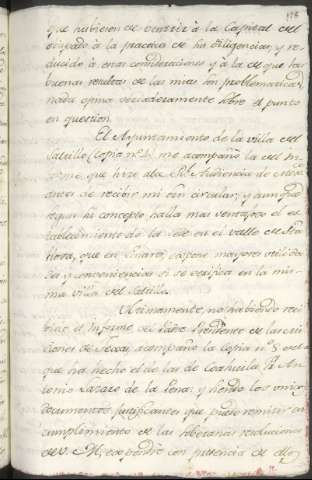 178
que hubiesen de ocurrir à la Capital del
obispado à la practica de sus diligencias, y re-
ducido à estas consideraciones y à la de que las
buenas resultas de las minas son problematicas,
nada opina verdaderamente sobre el punto
en question.
El Ayuntamiento de la villa del
Saltillo (copia nº 4.) me acompaña la del In-
forme, que hizo à la Rl. Audiencia de
antes de recibir mi circular; y aunque
segun su concepto halla mas ventajoso el es-
tablecimiento de la Sede en el valle de
que en Linares, expone mayores utilida-
des y conveniencias si se verifica en la mis-
ma villa del Saltillo.
Ultimamente, no habiendo reci-
bido el Informe del Padre Presidente de las mi-
siones de Texas, acompaño la copia nº 5 del
que ha hecho el de las de Coahuila Fr. An-
tonio Lazaro de la Pena: y siendo los unicos
documentos justificantes que puedo remitir en
cumplimiento de las soberanas resoluciones
de V. M., respondo con presencia de